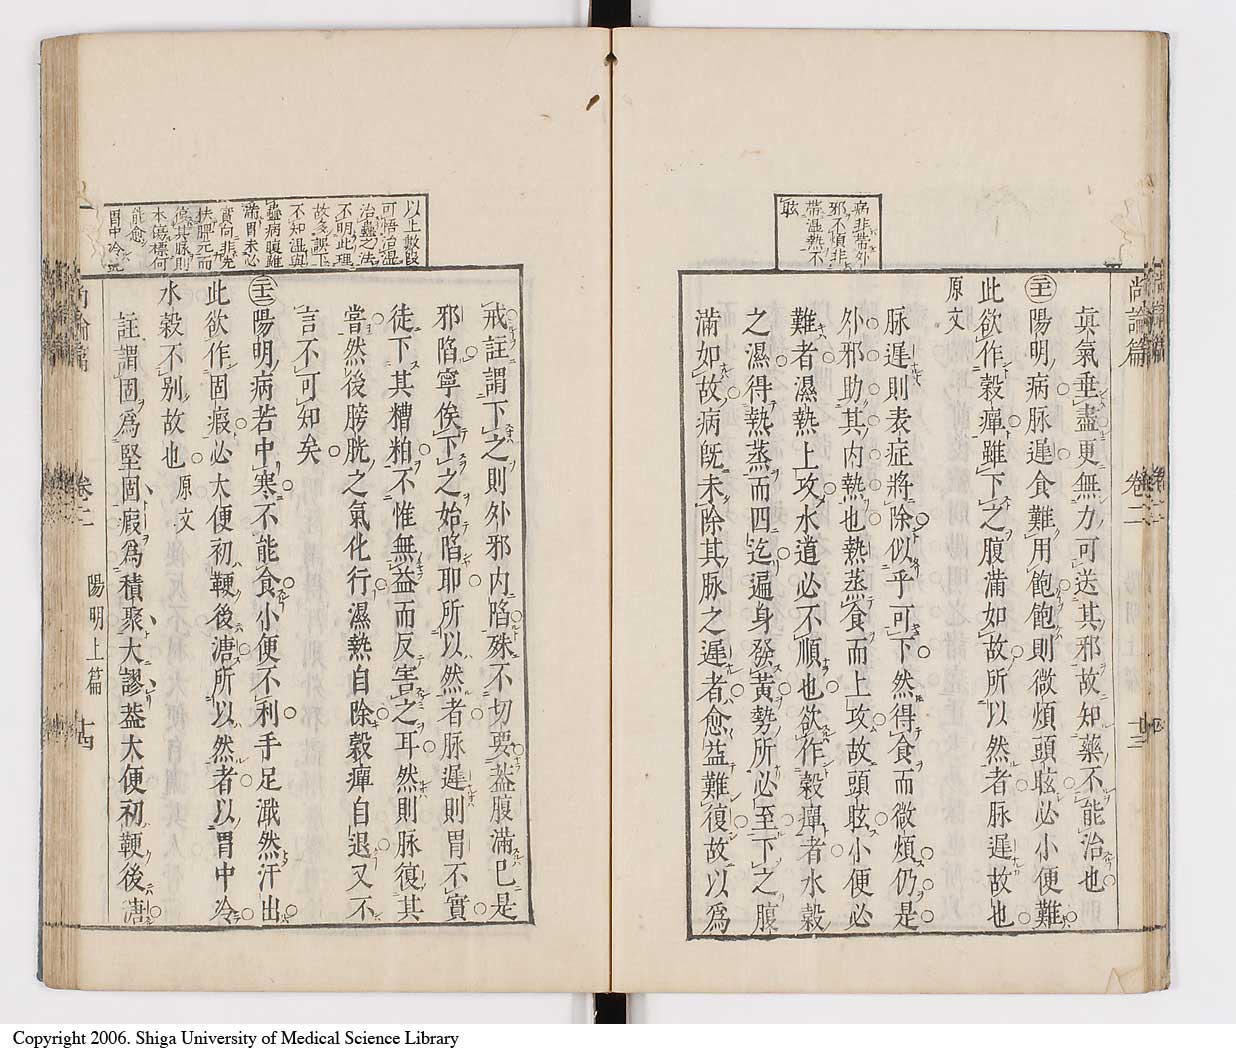 尚論篇 卷二
眞氣垂盡更無力可送其邪故知藥不能治也
陽明病脉遲食難用飽飽則微煩頭眩必小便難
此欲作穀癉雖下之腹滿如故所以然者脉遲故也
原文
脉遲則表症將除似乎可下然得食而微煩仍是
外邪助其內熱也熱蒸食而上攻故頭眩小便必
難者濕熱上攻水道必不順也欲作穀癉者水穀
之濕得熱蒸而四迄遍身發黃勢所必至下之腹
滿如故病旣未除其脉之遲者愈益難復故以爲
病非帶外
邪不煩非
帶濕熱不
眩
戒註謂下之則外邪內陷殊不切要蓋腹滿已是
邪陷寧俟下之始陷耶所以然者脉遲則胃不實
徒下其糟粕不惟無益而反害之耳然則脉復其
當然後膀胱之氣化行濕熱自除穀癉自退又不
言不可知矣
陽明病若中寒不能食小便不利手足濈然汗出
此欲作固瘕必大便初鞕後溏所以然者以胃中冷
水穀不别故也 原文
註謂固爲堅固瘕爲積聚大謬蓋大便初鞕後溏
以上數段
可悟治濕
治蠱之法
不明此理
故多誤下
不知濕與
蠱病腹雖
滿胃未必
實尙非先
扶脾元而
復其脉則
本傷標何
能愈
胃中冷
卷二 陽明上篇 十四